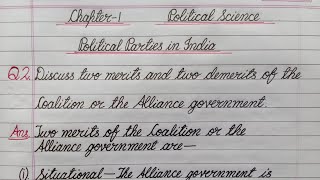 Chapter-1 Political Science
Political Parties in India
Q2. Discuss two merits and two demerits of the
Coalition or the Alliance government.
Ans Two merits of the Coalition or the
Alliance government are—
(i) Situational—The Alliance government is